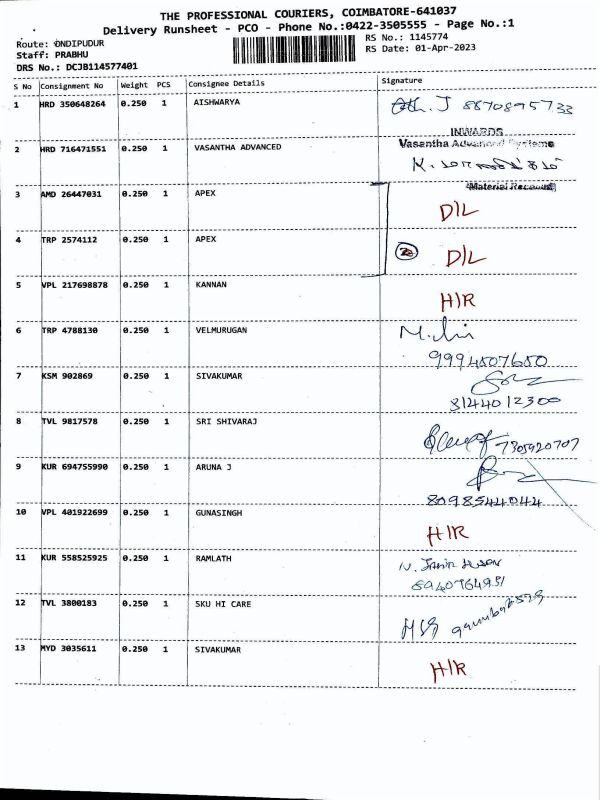 THE PROFESSIONAL COURIERS, COIMBATORE-641037
Delivery Runsheet - PCO - Phone No.:0422-3505555 - Page No.:1
Route: ONDIPUDUR
RS No.: 1145774
Staff: PRABHU
RS Date: 01-Apr-2023
DRS No.: DCJB114577401
S No Consignment No Weight PCS Consignee Details Signature
1 HRD 350648264 0.250 1 AISHWARYA J 8870895733
INWARDS
2 HRD 716471551 0.250 1 VASANTHA ADVANCED Vasantha Advanced Systems
Material Received
3 AMD 26447031 0.250 1 APEX D/L
4 TRP 2574112 0.250 1 APEX D/L
5 VPL 217698878 0.250 1 KANNAN H/R
6 TRP 4788130 0.250 1 VELMURUGAN
9994507650
7 KSM 902869 0.250 1 SIVAKUMAR
8144012300
8 TVL 9817578 0.250 1 SRI SHIVARAJ 7305920707
9 KUR 694755990 0.250 1 ARUNA J
8098544044
10 VPL 401922699 0.250 1 GUNASINGH H/R
11 KUR 558525925 0.250 1 RAMLATH
8940764951
12 TVL 3800183 0.250 1 SKU HI CARE
13 MYD 3035611 0.250 1 SIVAKUMAR H/R